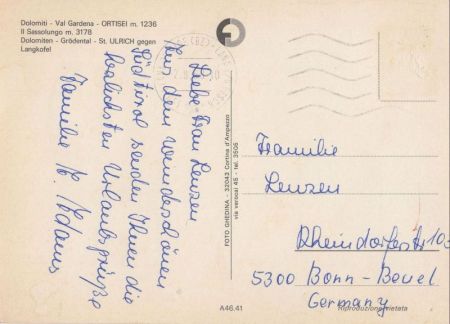 Dolomiti - Val Gardena - ORTISEI m. 1236
Il Sassolungo m. 3178
Dolomiten - Grödental - St. ULRICH gegen
Langkofel
Liebe Frau Lenzen.
Aus dem wunderschönen
Südtirol senden Ihnen die
herzlichsten Urlaubsgrüße
Familie K. Adams
FOTO GHEDINA - 32043 Cortina d'Ampezzo
via verocai 45 - tel. 3606
Familie
Lenzen
Rheindorferstr 103
5300 Bonn-Beuel
Germany
A46.41
Riproduzione vietata